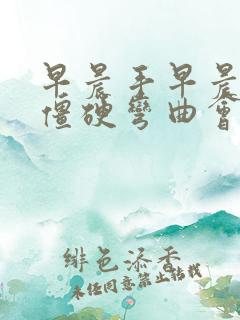 早晨手早晨
僵硬弯曲會
绯色添香
未经同意禁止转载